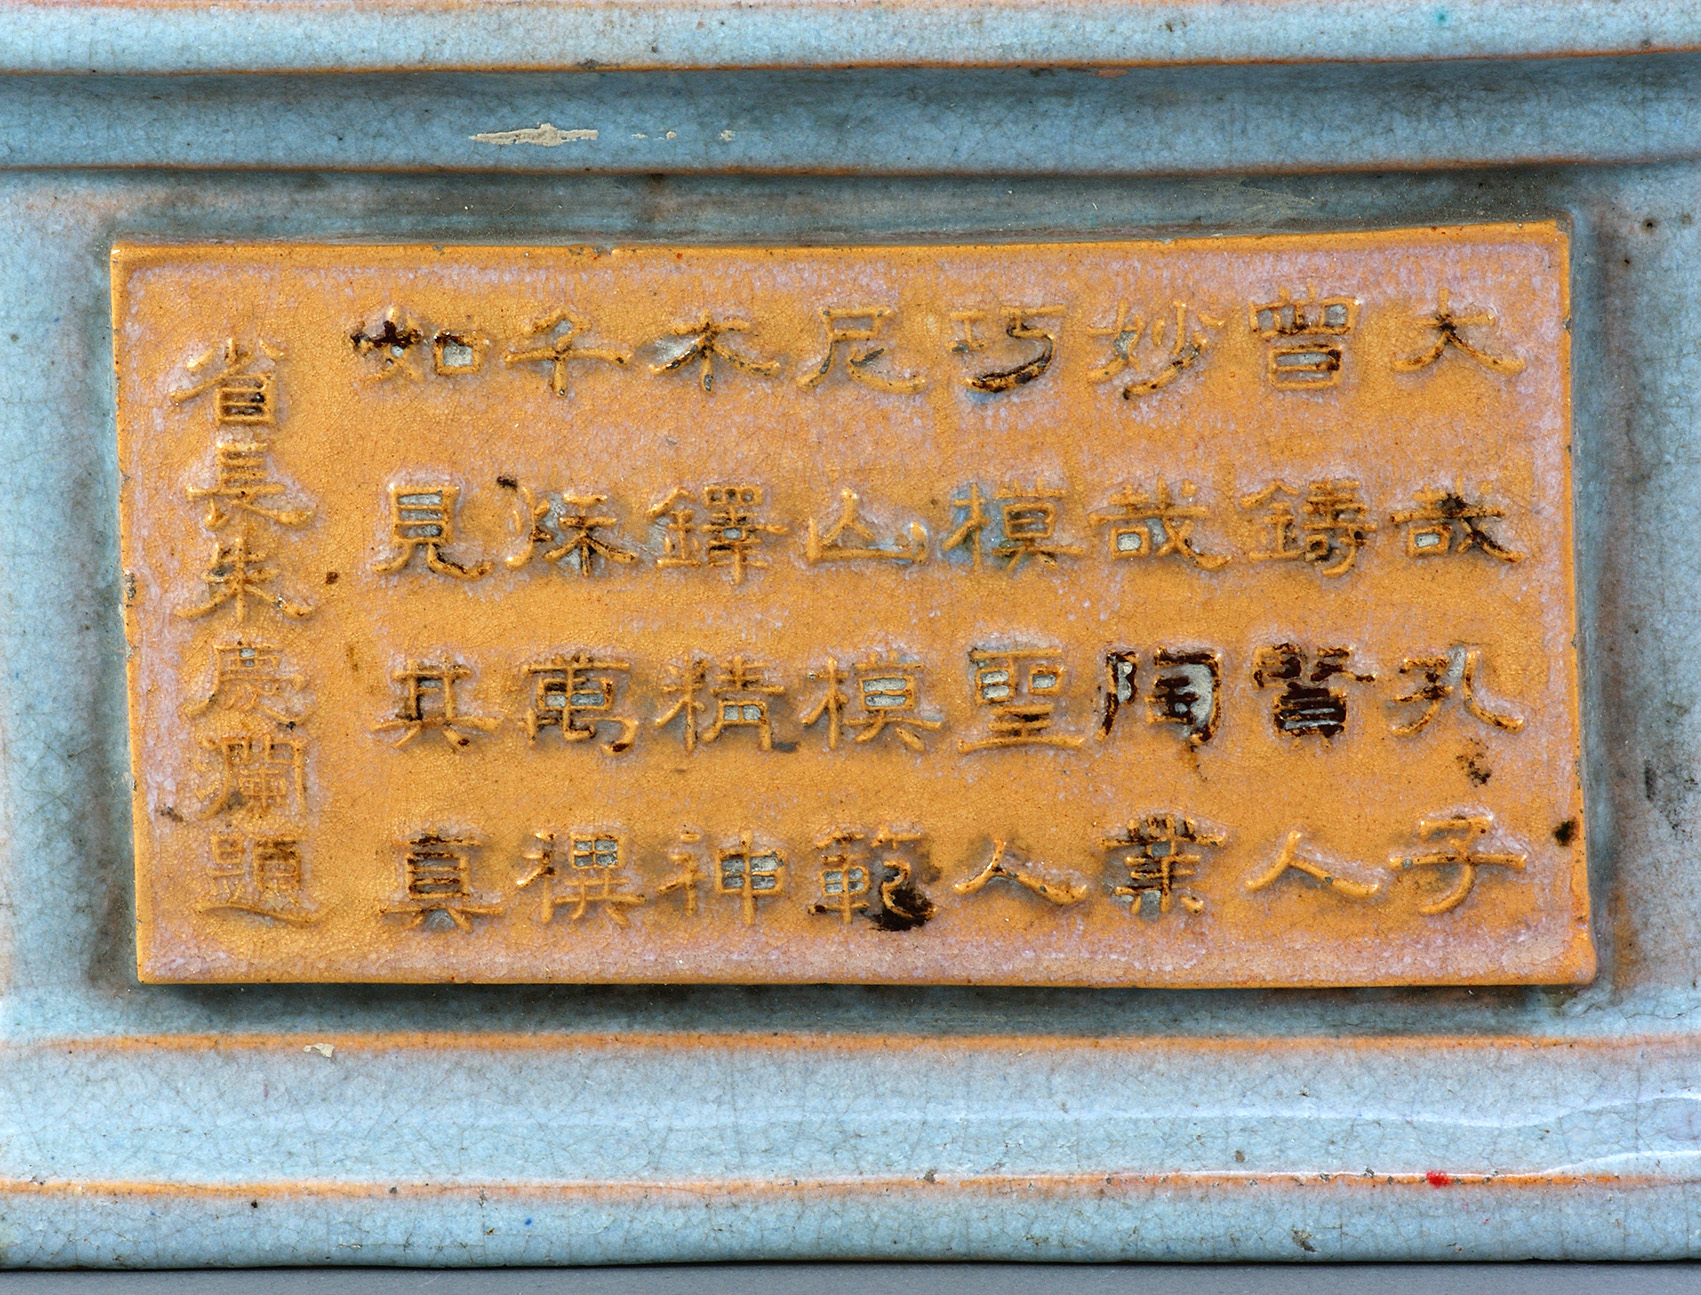 大哉孔子
曾鑄賢人
妙哉陶業
巧模聖人
尼山模範
木鐸精神
千秌萬禩
如見其真
省長朱慶瀾題